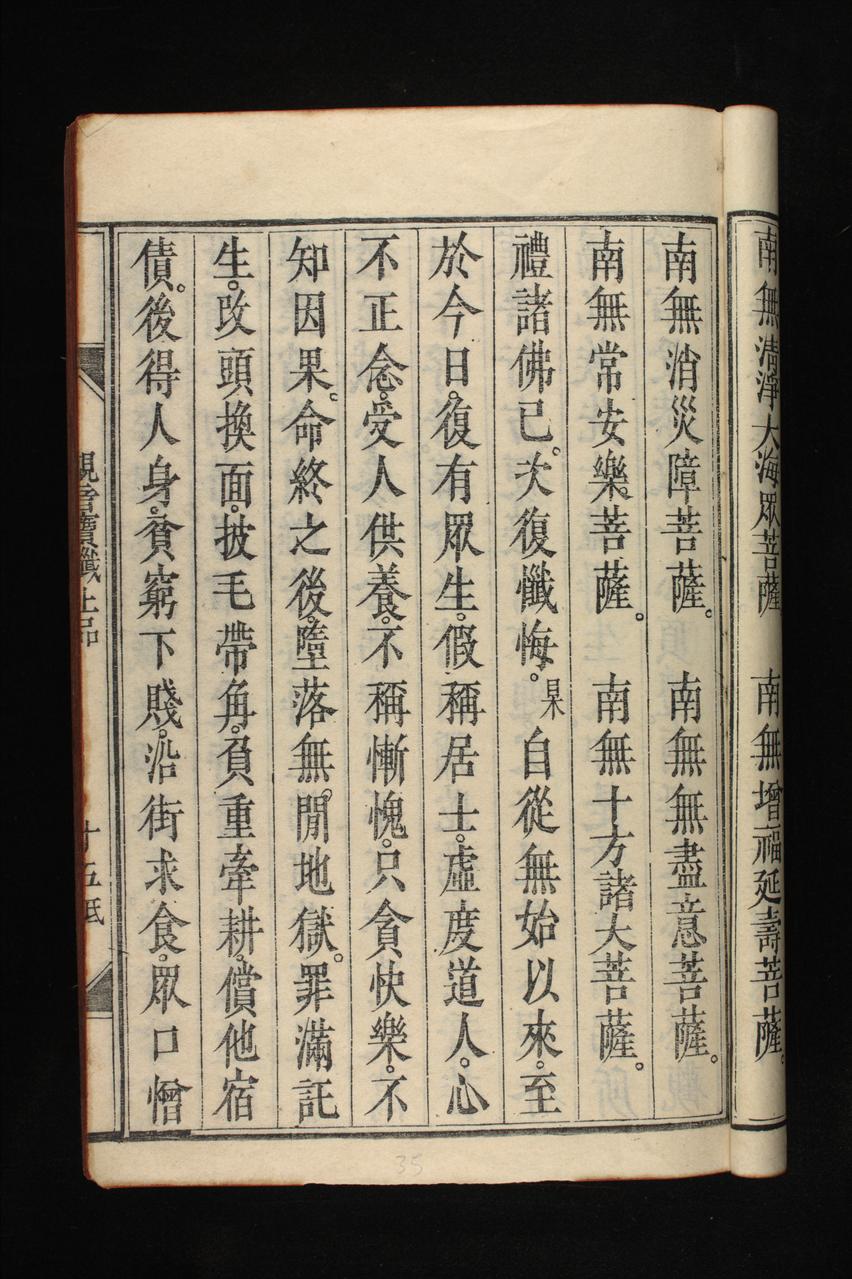 南無清淨大海眾菩薩　南無增福延壽菩薩。
南無消災障菩薩。　南無無盡意菩薩。
南無常安樂菩薩。　南無十方諸大菩薩。
禮諸佛已。次復懺悔。某自從無始以來。至
於今日。復有眾生。假稱居士。虛度道人。心
不正念。受人供養。不稱慚愧。只貪快樂。不
知因果。命終之後。墮落無。閒地獄。罪滿託
生。改頭換面。披毛帶角。負重牽耕。償他宿
債。後得人身。貧窮下賤。沿街求食。眾口憎
觀音寶懺上品
十五
35